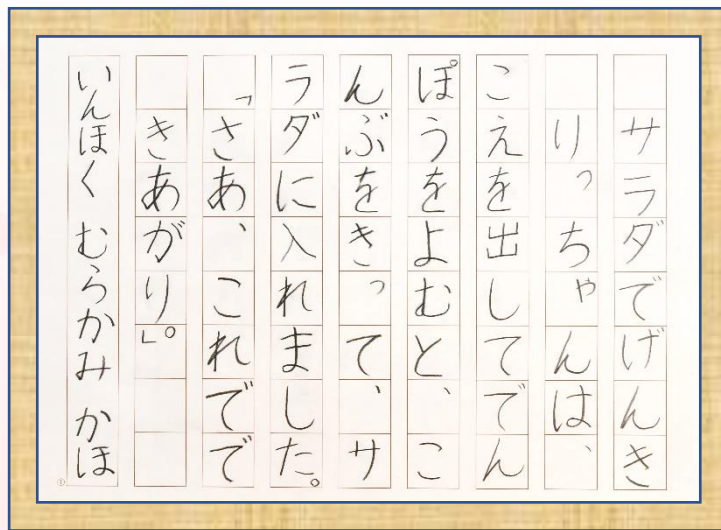 サラダでげんき
りっちゃんは、
こえを出してでん
ぽうをよむと、こ
んぶをきって、サ
ラダに入れました。
「さあ、これでで
きあがり」。
いんほく むらかみ かほ